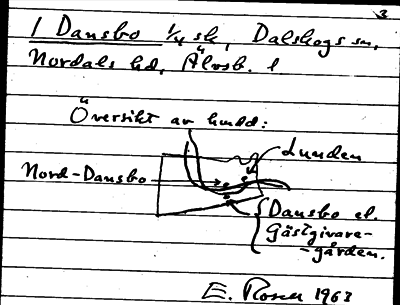 3
1 Dansbo 1/4 sk, Dalskogs sn,
Nordals hd, Älvsb. l
Översikt av hmdd:
Lunden
Nord-Dansbo
Dansbo el.
Gästgivare-
-gården.
E. Rosen 1963